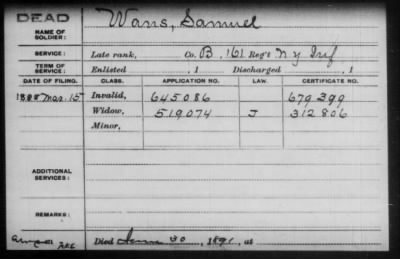 DEAD
NAME OF SOLDIER: Wans, Samuel
SERVICE: Late rank, Co. B, 161 Reg't N.Y. Inf
TERM OF SERVICE: Enlisted , 1 Discharged , 1
DATE OF FILING. CLASS. APPLICATION NO. LAW. CERTIFICATE NO.
1888 Mar. 15 Invalid, 645086 679399
Widow, 519074 J 312806
Minor,
ADDITIONAL SERVICES:
REMARKS:
Died 30, 1891, at